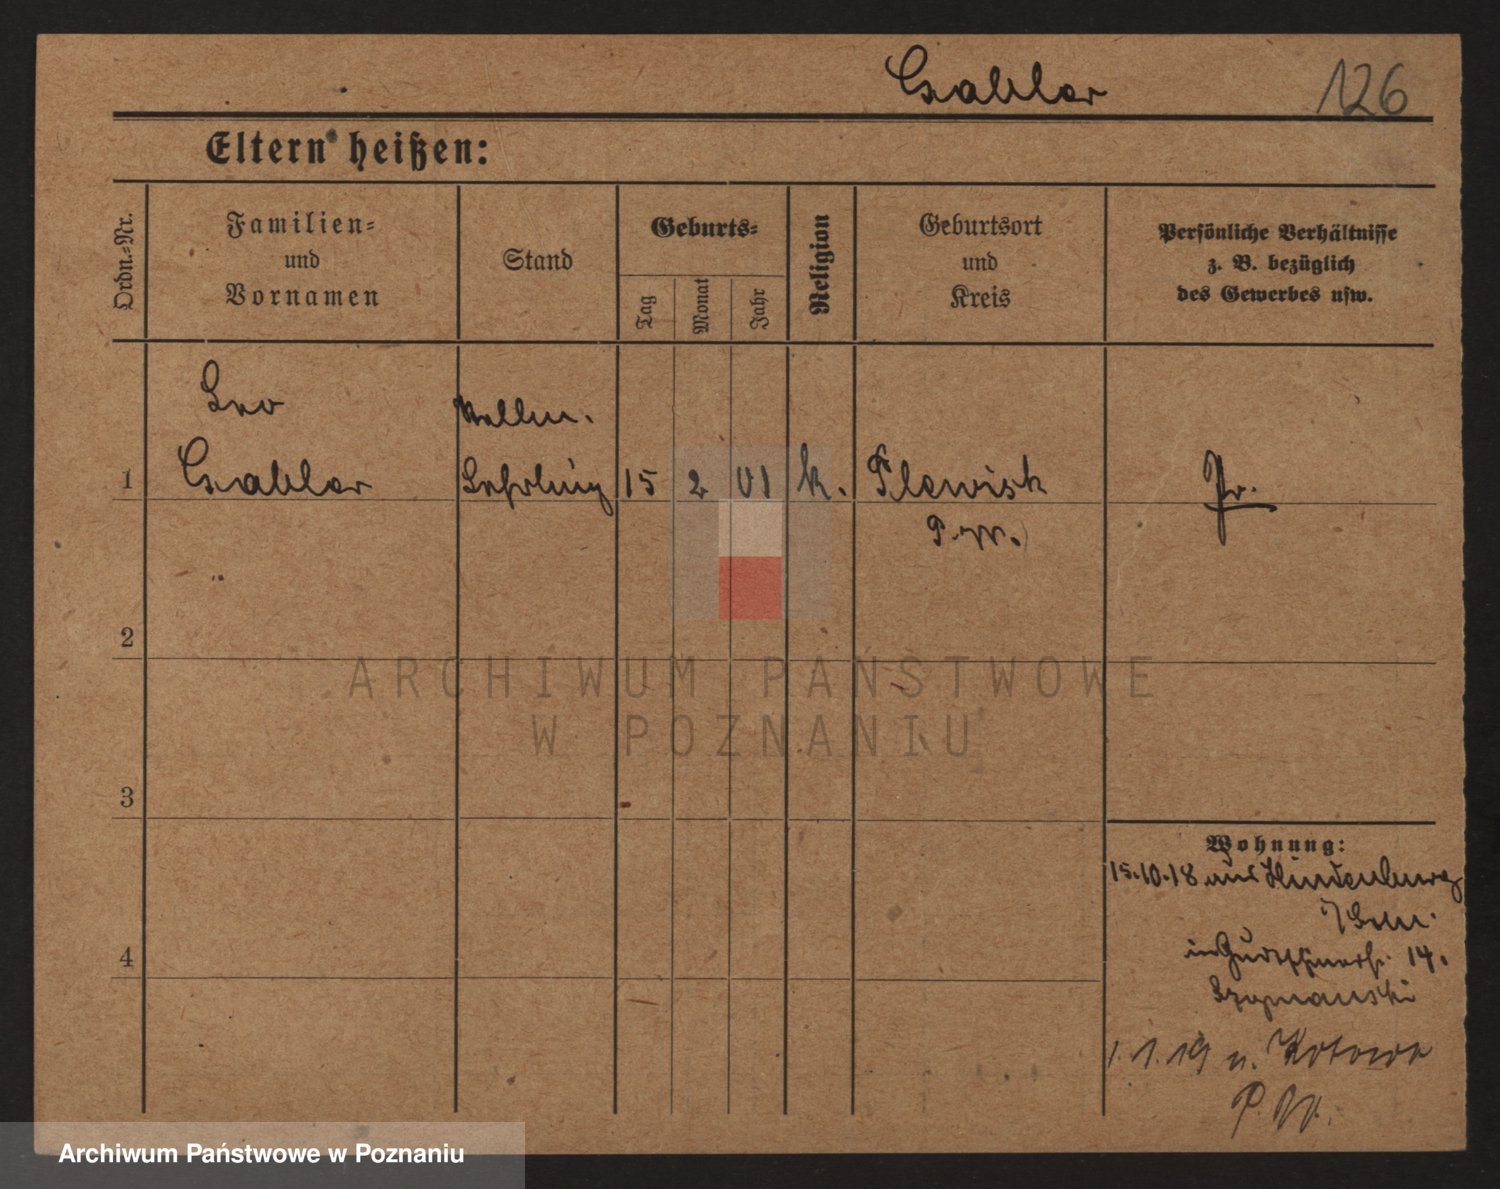 Gabler 126
Eltern heißen:
Ordn.-Nr.
Familien-
und
Vornamen
Stand
Geburts-
Tag
Monat
Jahr
Religion
Geburtsort
und
Kreis
Persönliche Verhältnisse
z. B. bezüglich
des Gewerbes usw.
Leo
Kelln.
1 Gabler Lehrling 15 2 01 k. Plewisk Pr.
P. W.
2
3
Wohnung:
15.10.18 aus Hindenburg
14.
4
Szymanski
1.1.19 n. Kotowo
P. W.
ARCHIWUM PAŃSTWOWE
W POZNANIU
Archiwum Państwowe w Poznaniu